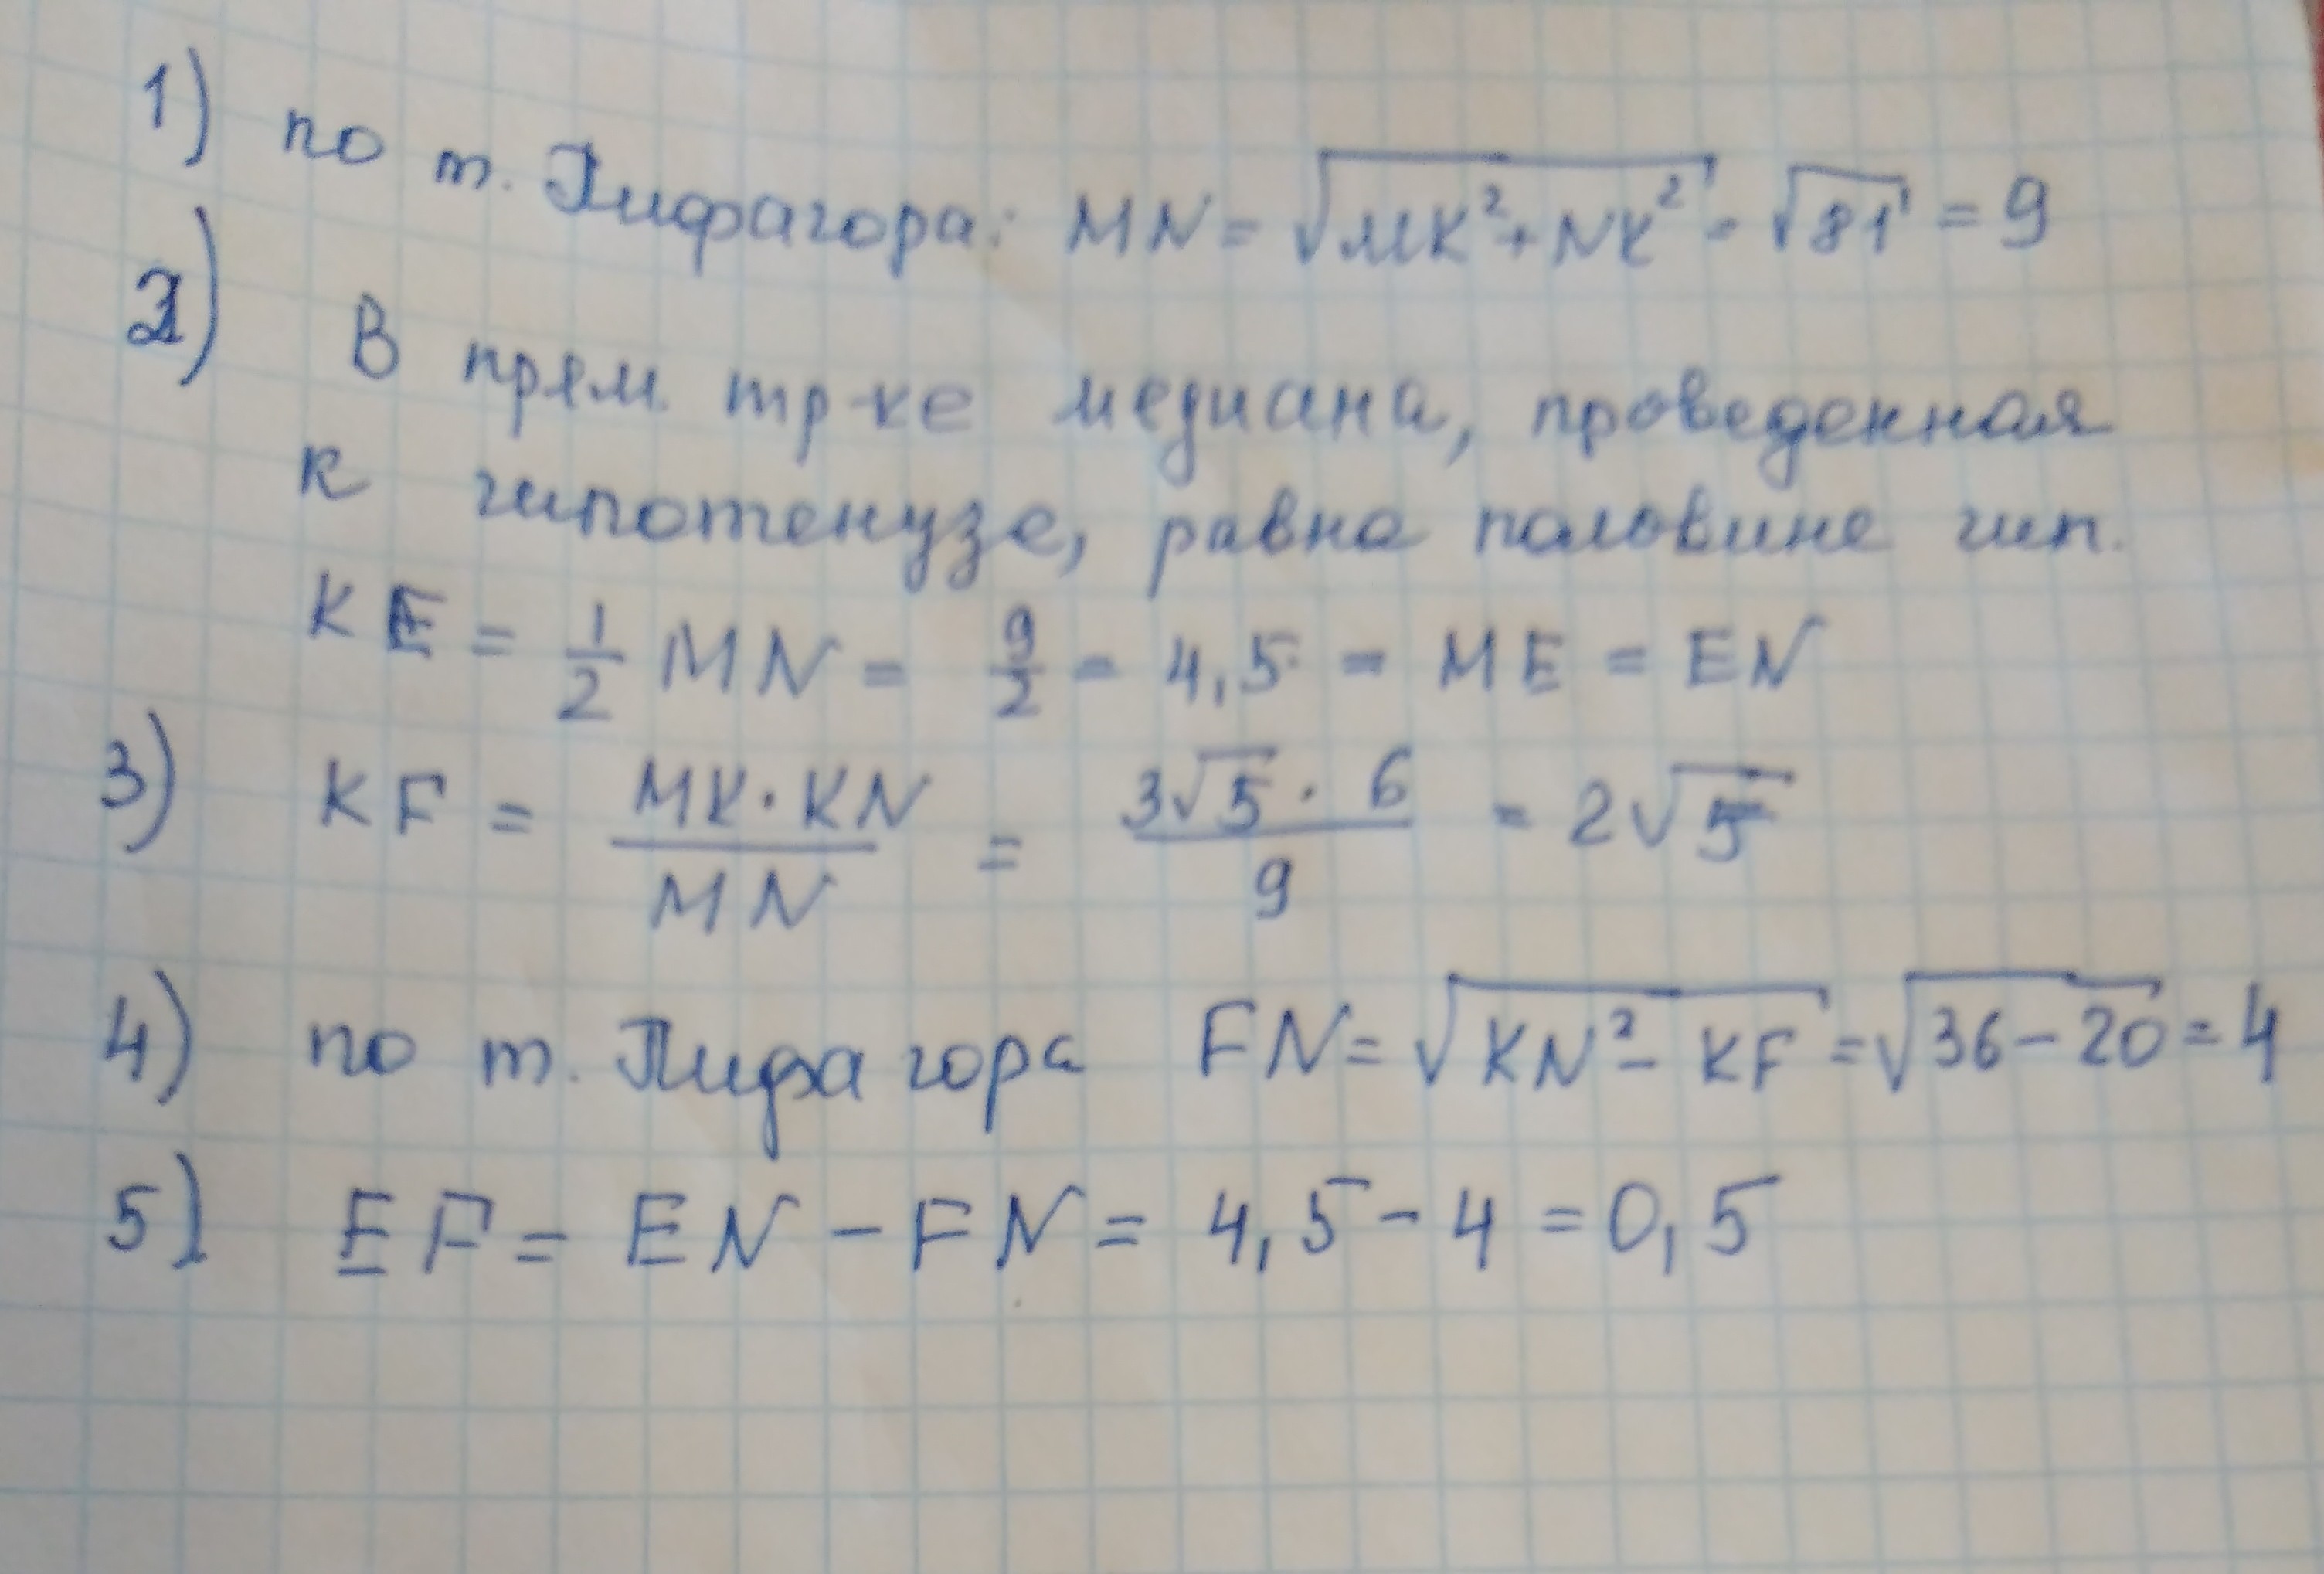 1) по т. Пифагора: MN = √(MK² + NK²) = √81 = 9
2) В прям. тр-ке медиана, проведенная
к гипотенузе, равна половине гип.
KE = 1/2 MN = 9/2 = 4,5 = ME = EN
3) KF = MK · KN / MN = 3√5 · 6 / 9 = 2√5
4) по т. Пифагора FN = √(KN² - KF) = √(36 - 20) = 4
5) EF = EN - FN = 4,5 - 4 = 0,5